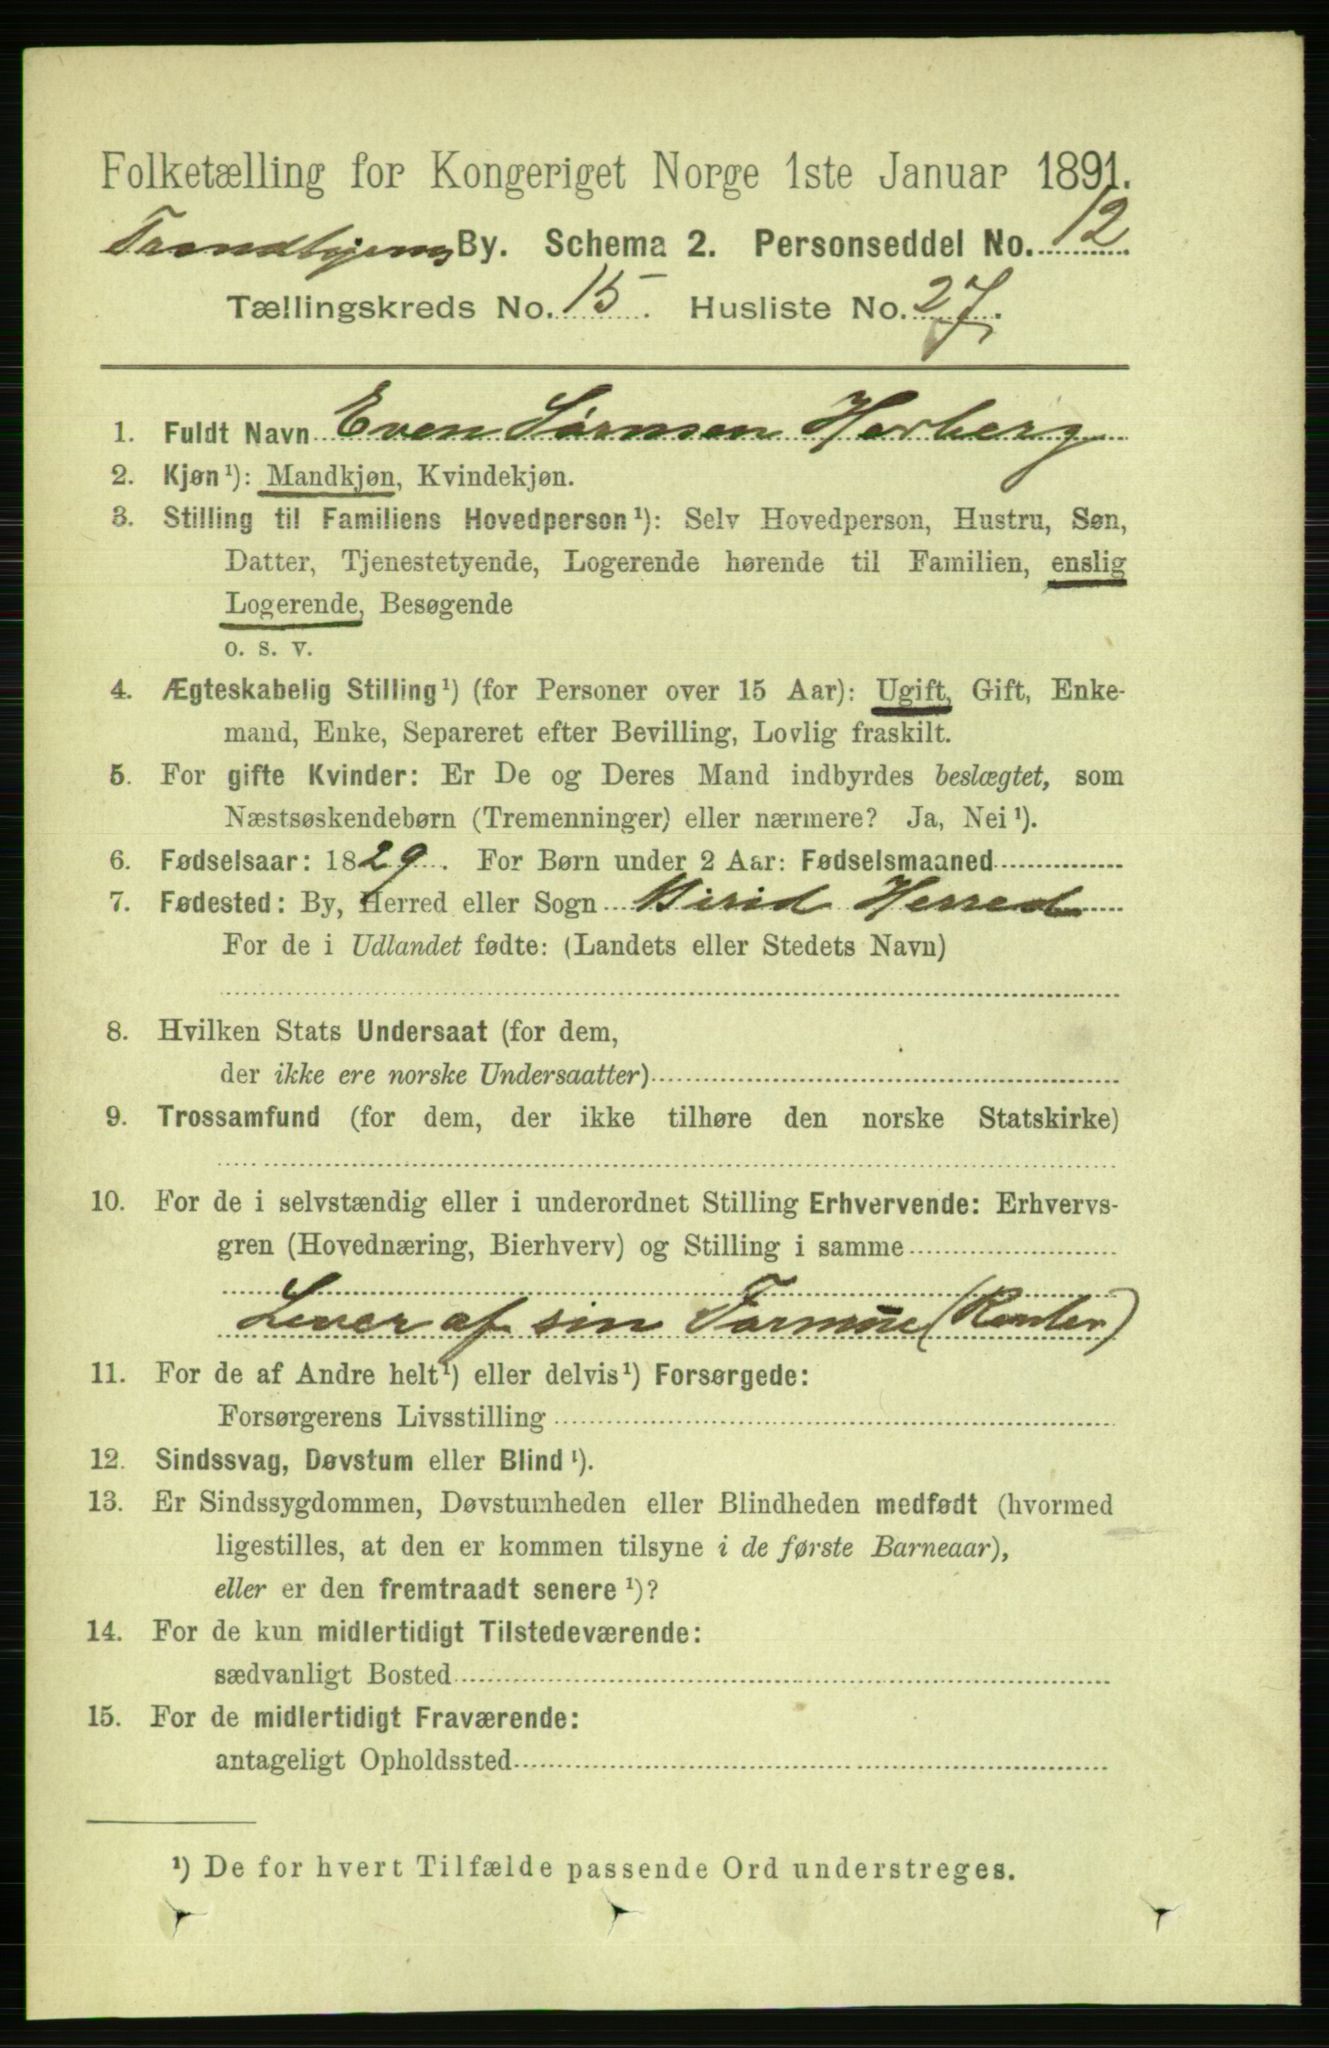 Folketælling for Kongeriget Norge 1ste Januar 1891.
Trondhjems By. Schema 2. Personseddel No. 12
Tællingskreds No. 15. Husliste No. 27.
1. Fuldt Navn Even Larsen Horberg
2. Kjøn¹): Mandkjøn, Kvindekjøn.
3. Stilling til Familiens Hovedperson¹): Selv Hovedperson, Hustru, Søn,
Datter, Tjenestetyende, Logerende hørende til Familien, enslig
Logerende, Besøgende
o. s. v.
4. Ægteskabelig Stilling¹) (for Personer over 15 Aar): Ugift, Gift, Enke-
mand, Enke, Separeret efter Bevilling, Lovlig fraskilt.
5. For gifte Kvinder: Er De og Deres Mand indbyrdes beslægtet, som
Næstsøskendebørn (Tremenninger) eller nærmere? Ja, Nei¹).
6. Fødselsaar: 1829. For Børn under 2 Aar: Fødselsmaaned
7. Fødested: By, Herred eller Sogn Birid Herred
For de i Udlandet fødte: (Landets eller Stedets Navn)
8. Hvilken Stats Undersaat (for dem,
der ikke ere norske Undersaatter)
9. Trossamfund (for dem, der ikke tilhøre den norske Statskirke)
10. For de i selvstændig eller i underordnet Stilling Erhvervende: Erhvervs-
gren (Hovednæring, Bierhverv) og Stilling i samme
Lever af sin Formue (Renter)
11. For de af Andre helt¹) eller delvis¹) Forsørgede:
Forsørgerens Livsstilling
12. Sindssvag, Døvstum eller Blind¹).
13. Er Sindssygdommen, Døvstumheden eller Blindheden medfødt (hvormed
ligestilles, at den er kommen tilsyne i de første Barneaar),
eller er den fremtraadt senere¹)?
14. For de kun midlertidigt Tilstedeværende:
sædvanligt Bosted
15. For de midlertidigt Fraværende:
antageligt Opholdssted
¹) De for hvert Tilfælde passende Ord understreges.